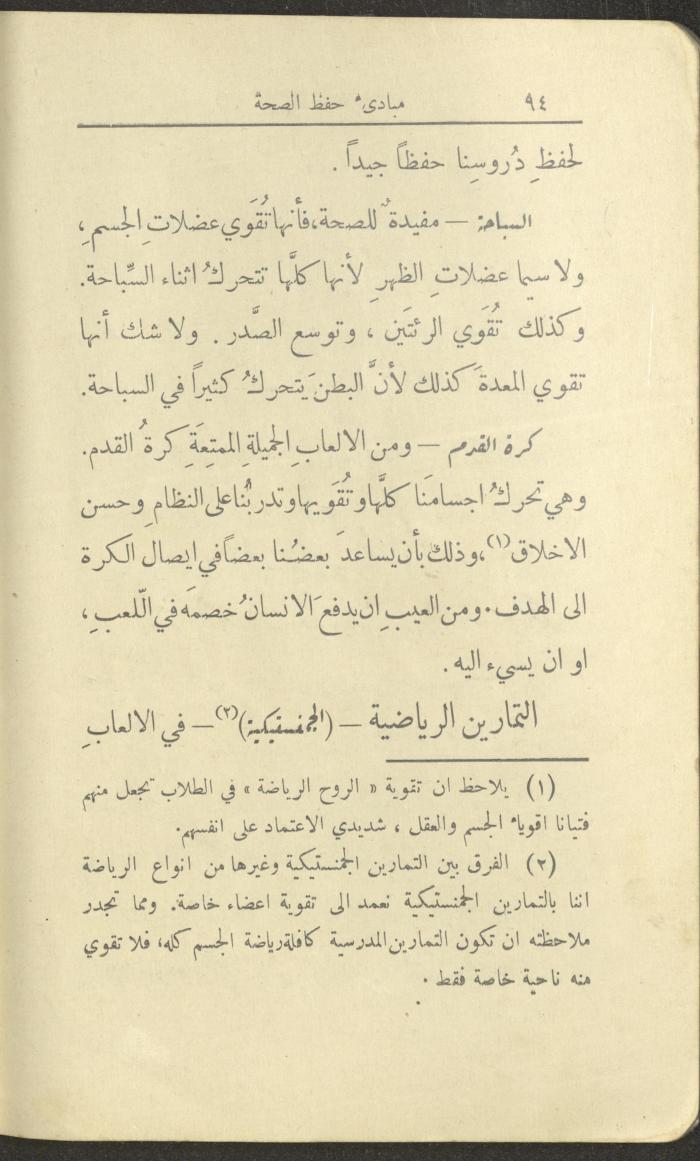 ٩٤ مبادىء حفظ الصحة
لحفظِ دُروسِنا حفظاً جيداً .
السباحة — مفيدةٌ للصحة، فأنها تُقَوي عضلاتِ الجسمِ ،
ولا سيما عضلاتِ الظهرِ لأنها كلَّها تتحركُ اثناء السِّباحة.
وكذلك تُقَوي الرئتَين ، وتوسع الصَّدر . ولا شك أنها
تقوي المعدةَ كذلك لأنَّ البطنَ يتحركُ كثيراً في السباحة.
كرة القدم — ومن الالعابِ الجميلةِ الممتِعَةِ كرةُ القدم.
وهي تحركُ اجسامَنا كلَّها وتُقَويها وتدربُنا على النظامِ وحسن
الاخلاق(١)، وذلك بأن يساعدَ بعضُنا بعضاً في ايصال الكرة
الى الهدف. ومن العيبِ ان يدفعَ الانسانُ خصمَه في الّلعبِ ،
او ان يسيء اليه .
التمارين الرياضية — (الجمنستيكية)(٢) — في الالعابِ
(١) يلاحظ ان تقوية « الروح الرياضة » في الطلاب تجعل منهم
فتيانا اقوياء الجسم والعقل ، شديدي الاعتماد على انفسهم.
(٢) الفرق بين التمارين الجمنستيكية وغيرها من انواع الرياضة
اننا بالتمارين الجمنستيكية نعمد الى تقوية اعضاء خاصة. ومما تجدر
ملاحظته ان تكون التمارين المدرسية كافلة رياضة الجسم كله، فلا تقوي
منه ناحية خاصة فقط .